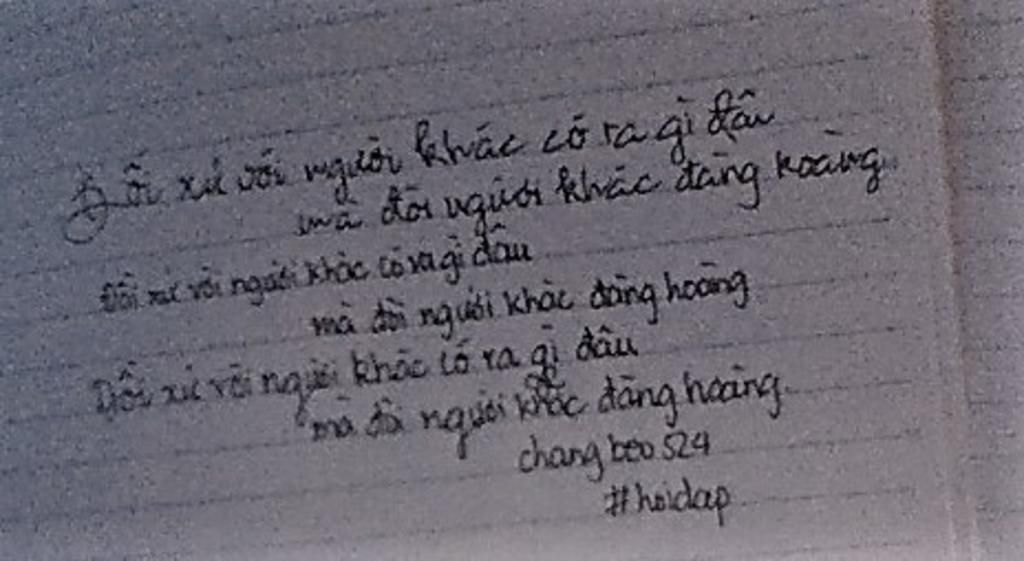 Đối xử với người khác có ra gì đâu
mà đòi người khác đàng hoàng.
Đối xử với người khác có ra gì đâu
mà đòi người khác đàng hoàng
Đối xử với người khác có ra gì đâu
mà đòi người khác đàng hoàng.
changbeo524
#hoidap